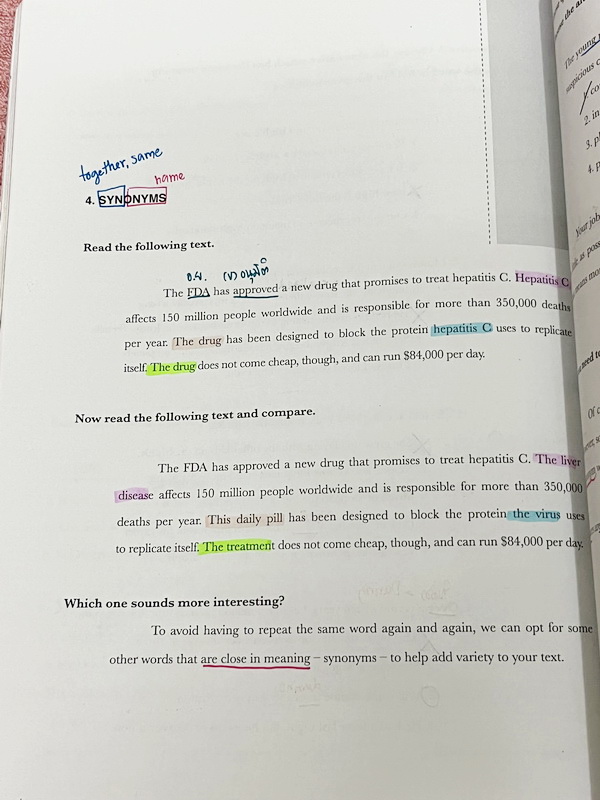 together, same
name
4. SYNONYMS
Read the following text.
อ.ย. (v) อนุมัติ
The FDA has approved a new drug that promises to treat hepatitis C. Hepatitis C
affects 150 million people worldwide and is responsible for more than 350,000 deaths
per year. The drug has been designed to block the protein hepatitis C uses to replicate
itself. The drug does not come cheap, though, and can run $84,000 per day.
Now read the following text and compare.
The FDA has approved a new drug that promises to treat hepatitis C. The liver
disease affects 150 million people worldwide and is responsible for more than 350,000
deaths per year. This daily pill has been designed to block the protein the virus uses
to replicate itself. The treatment does not come cheap, though, and can run $84,000 per day.
Which one sounds more interesting?
To avoid having to repeat the same word again and again, we can opt for some
other words that are close in meaning – synonyms – to help add variety to your text.
The young
suspicious
1. co
2. in
3. p
4. P
Your job
as poss
need to
Of c